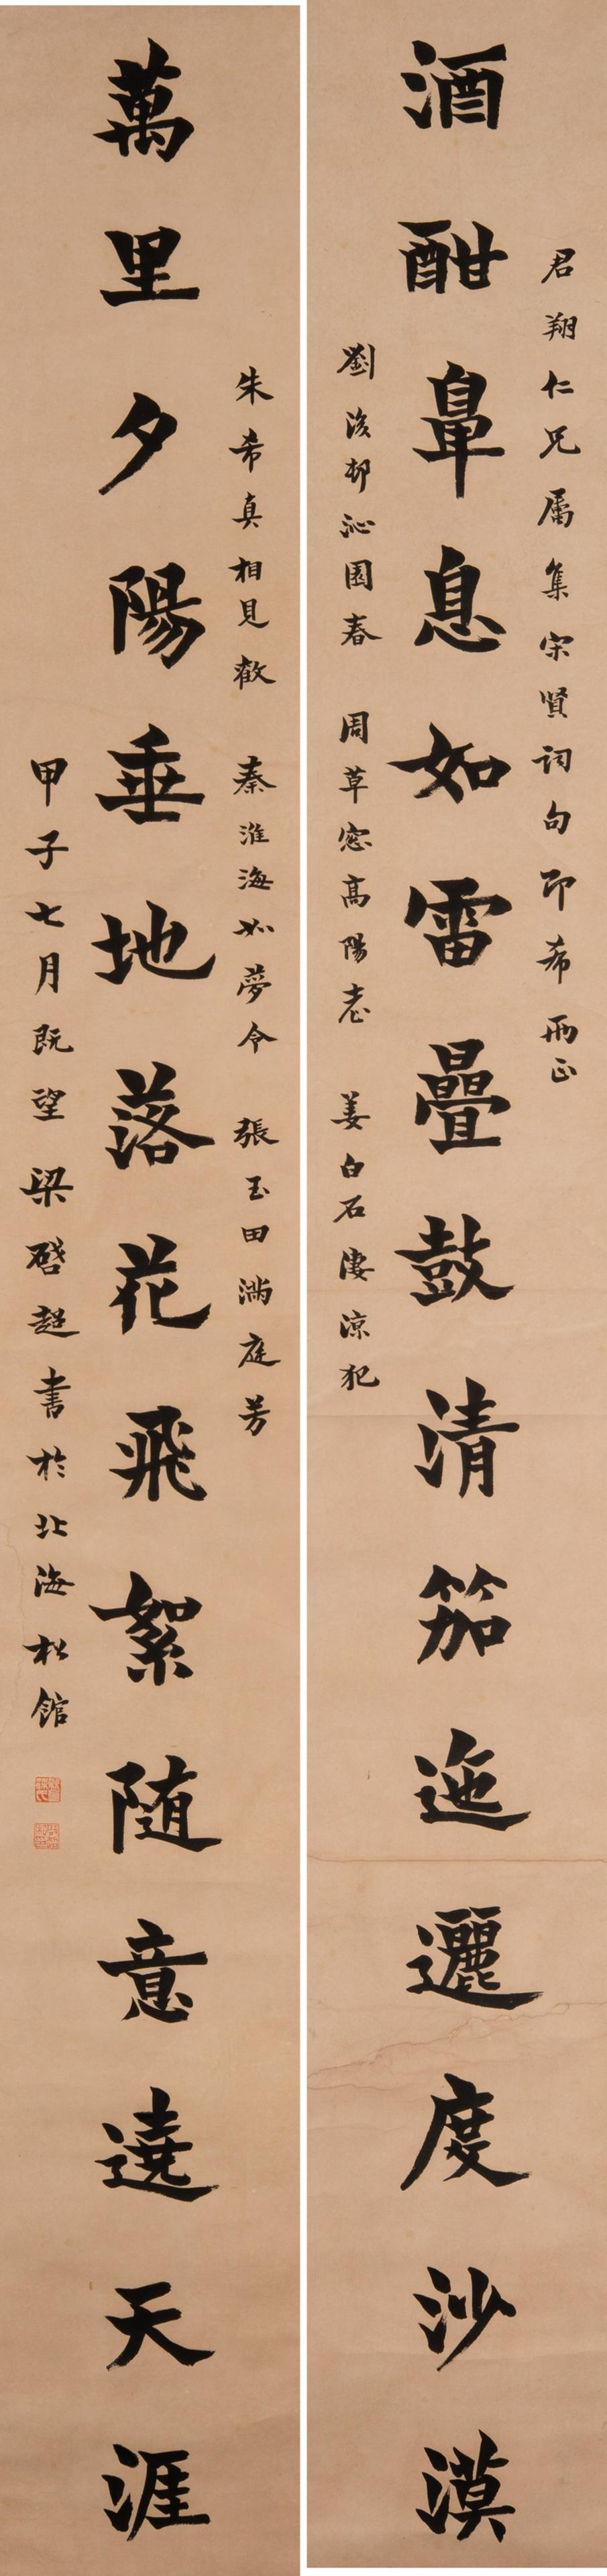 君翔仁兄属集宋賢詞句即希兩正
酒酣鼻息如雷疊鼓清笳迤邐度沙漠
劉後邨沁園春 周草窓高陽臺 姜白石凄涼犯
朱希真相見歡 秦淮海如夢令 張玉田滿庭芳
萬里夕陽垂地落花飛絮随意遶天涯
甲子七月既望梁啓超書於北海松館